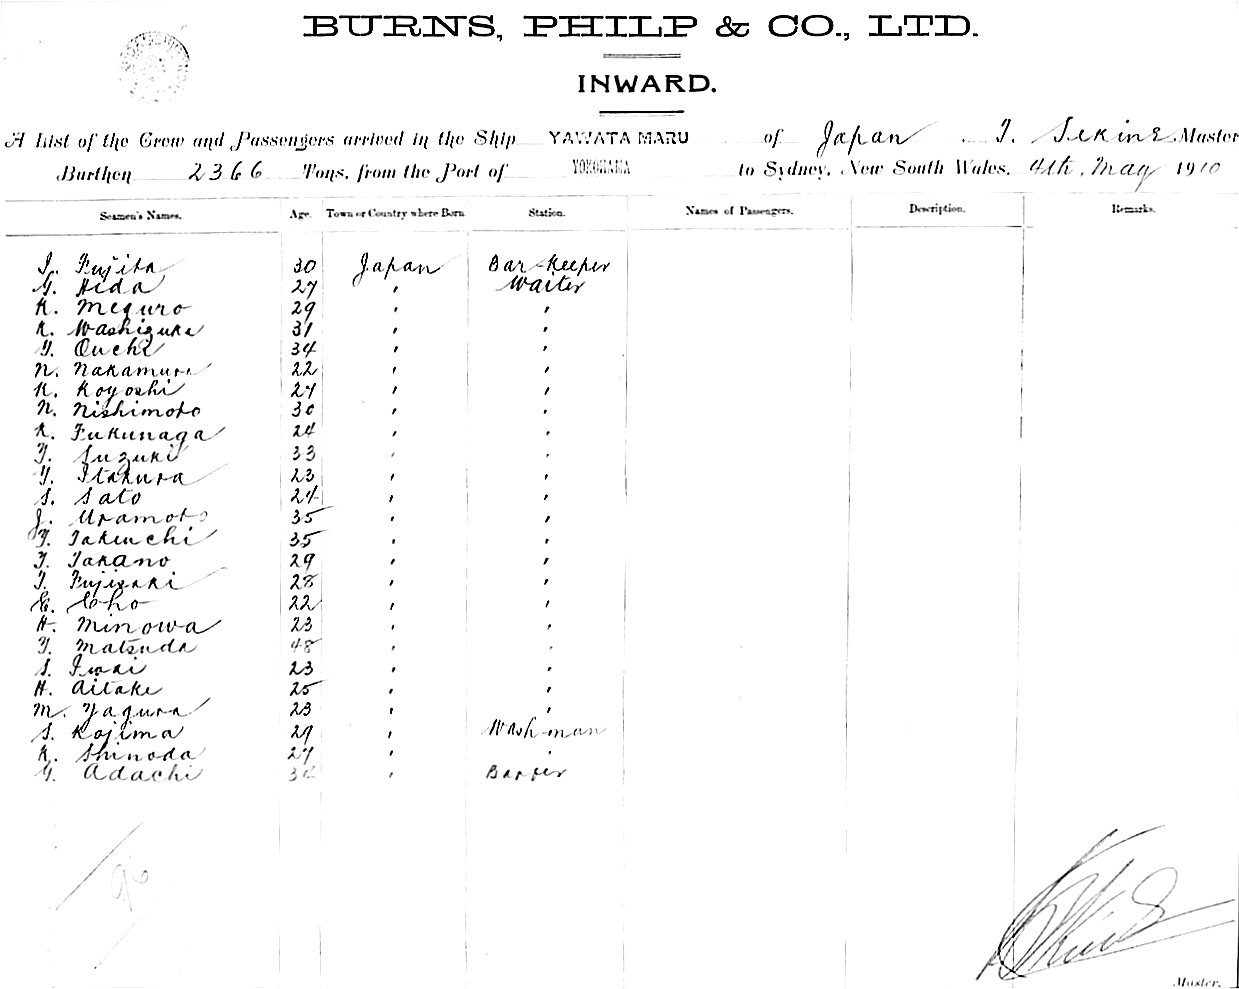 BURNS, PHILP & CO., LTD.
INWARD.
A List of the Crew and Passengers arrived in the Ship YAWATA MARU of Japan . T. Sekine Master
Burthen 2366 Tons, from the Port of YOKOHAMA to Sydney, New South Wales, 4th. May 1910
Seamen's Names. Age. Town or Country where Born Station. Names of Passengers. Description. Remarks.
I. Fujita 30 Japan Bar-Keeper
G. Hida 27 " Waiter
K. Meguro 29 " "
K. Washizuka 31 " "
Y. Ouchi 34 " "
N. Nakamura 22 " "
K. Koyoshi 27 " "
N. Nishimoto 30 " "
K. Fukunaga 24 " "
Y. Suzuki 33 " "
Y. Itakura 23 " "
S. Sato 24 " "
J. Uramoto 35 " "
Y. Takeuchi 35 " "
T. Takano 29 " "
T. Fujisaki 28 " "
C. Cho 22 " "
H. Minowa 23 " "
Y. Matsuda 48 " "
S. Iwai 23 " "
H. Aitake 25 " "
M. Yagura 23 " "
S. Kojima 29 " Wash-man
K. Shinoda 27 " "
G. Adachi 34 " Barber
96
Master.